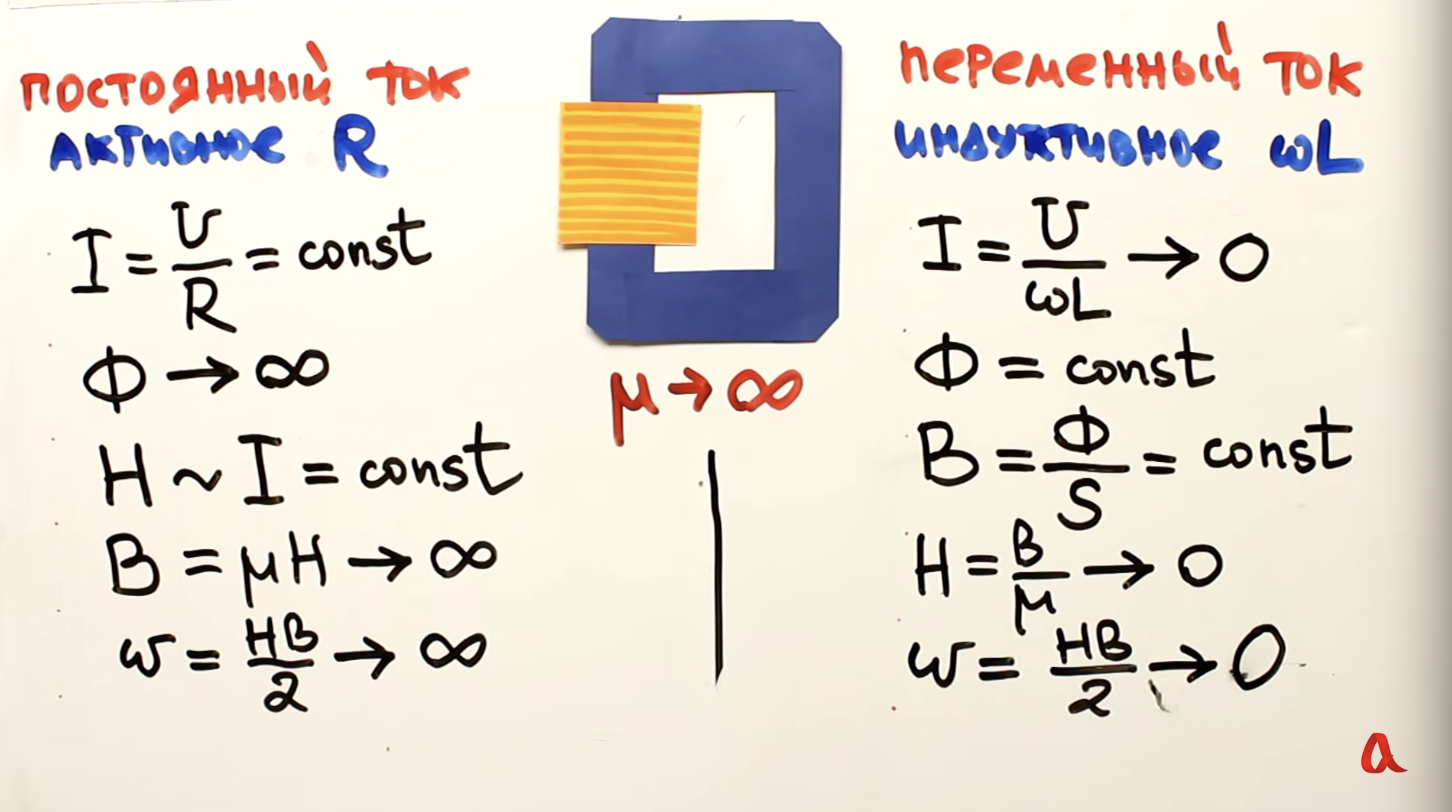 ПОСТОЯННЫЙ ТОК
АКТИВНОЕ R
I = U/R = const
Ф → ∞
H ~ I = const
B = μH → ∞
w = HB/2 → ∞
μ → ∞
ПЕРЕМЕННЫЙ ТОК
ИНДУКТИВНОЕ ωL
I = U/ωL → 0
Ф = const
B = Ф/S = const
H = B/μ → 0
w = HB/2 → 0
a